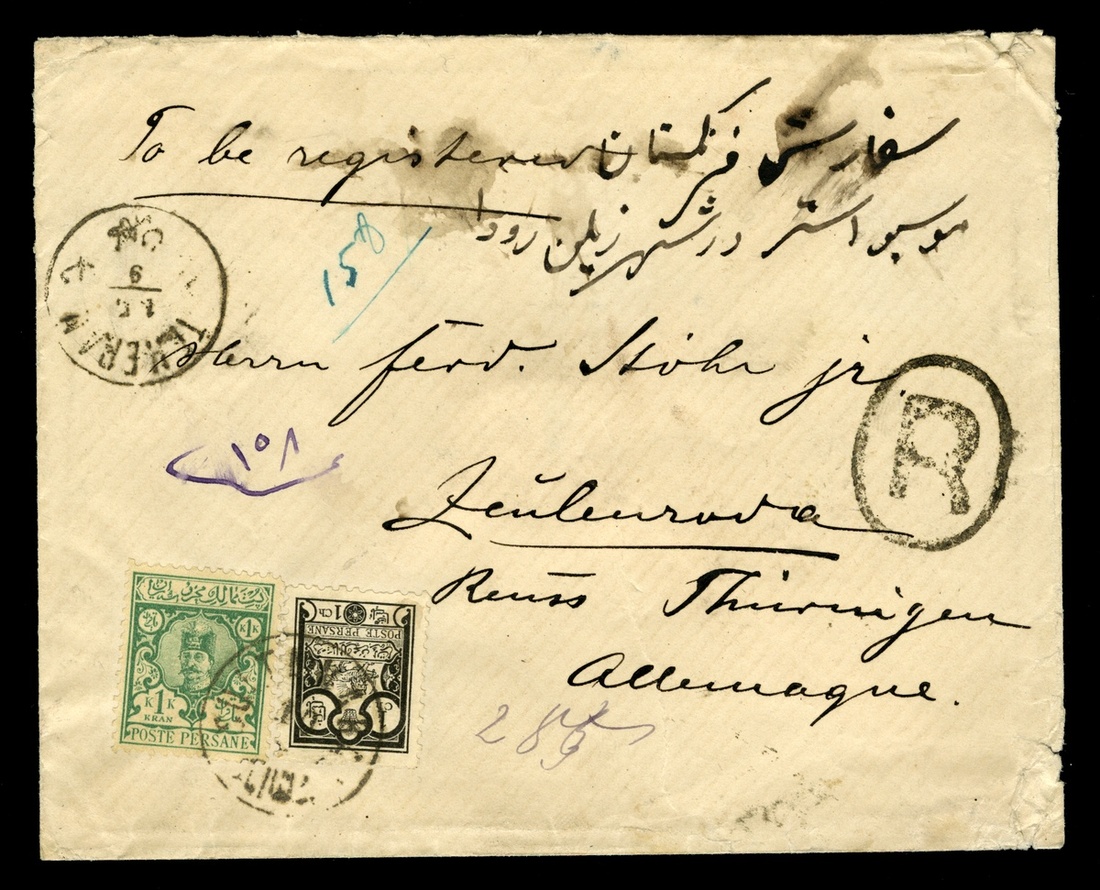 To be registered
سفارش فرنگستان
موسیو استر در شهر زیلن رودا
158
TEHERAN
9
Herrn Ferd. Stöhr jr.
R
۱۵۸
Zeulenroda
Reuss Thüringen
Allemagne.
285
1K
K1K
KRAN
POSTE PERSANE
1 Ch
POSTE PERSANE
Ch